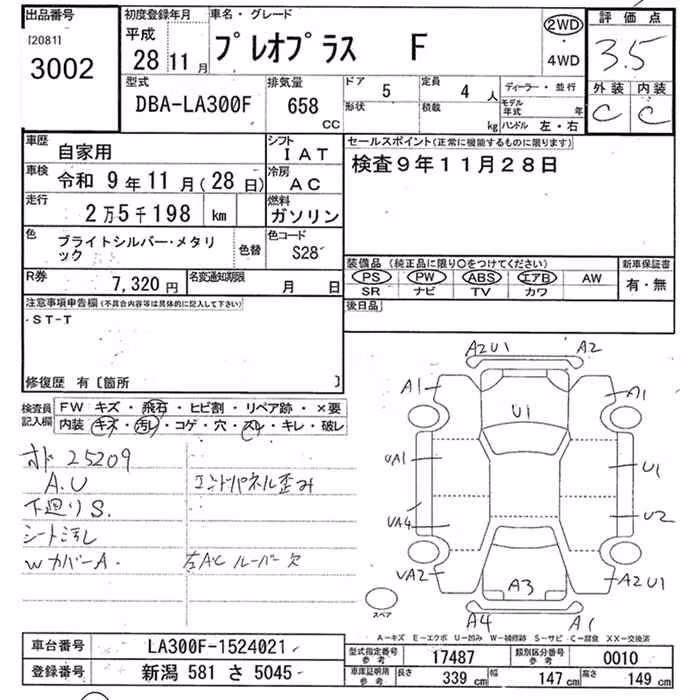 出品番号
[20811
3002
初度登録年月
平成
28 11 月
車名・グレード
プレオプラス F
2WD
4WD
評価点
3.5
外装 内装
C C
型式
DBA-LA300F
排気量
658
CC
ドア 5
形状
定員 4 人
積載 kg
ディーラー・並行
モデル年式 年
ハンドル 左・右
車歴
自家用
シフト
IAT
車検 令和 9 年 11 月 (28 日)
冷房
AC
走行
2 万 5 千 198 km
燃料
ガソリン
色
ブライトシルバー・メタリ
ック
色替
色コード
S28
R券 7,320 円
名変通知期限 月 日
セールスポイント(正常に機能するものに限ります)
検査9年11月28日
装備品 (純正品に限り○をつけてください)
PS PW ABS エアB AW
SR ナビ TV カワ
新車保証書
有・無
後日品
注意事項申告欄(不具合内容等は具体的に記入して下さい)
・ST-T
修復歴 有〔箇所 〕
検査員
記入欄
FW キズ・飛石・ヒビ割・リペア跡・×要
内装 キズ・汚レ・コゲ・穴・スレ・キレ・破レ
オド 25209
A.U エンドパネル歪み
下廻りS.
シート汚し
WカバーA. 左ACルーバー欠
A2U1 A2
A1 A1
U1
UA1 U1
UA4 U2
UA2 A3 A2U1
A4 A1
スペア
A-キズ E-エクボ U-凹み W-補修跡 S-サビ C-腐食 XX-交換済
車台番号 LA300F-1524021
登録番号 新潟 581 さ 5045
型式指定番号 参考 17487
類別区分番号 参考 0010
車庫証明用 参考 長さ 339 cm 幅 147 cm 高さ 149 cm